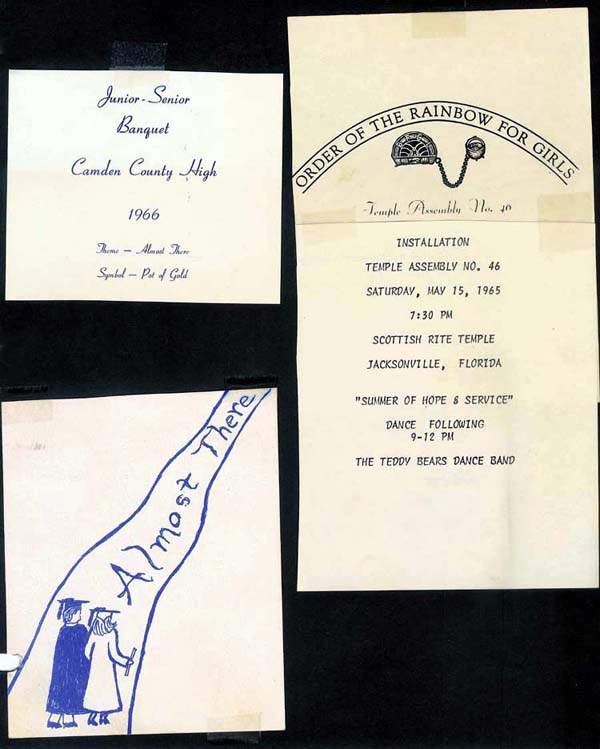 Junior-Senior
Banquet
Camden County High
1966
Theme — Almost There
Symbol — Pot of Gold
ORDER OF THE RAINBOW FOR GIRLS
Temple Assembly No. 46
INSTALLATION
TEMPLE ASSEMBLY NO. 46
SATURDAY, MAY 15, 1965
7:30 PM
SCOTTISH RITE TEMPLE
JACKSONVILLE, FLORIDA
"SUMMER OF HOPE & SERVICE"
DANCE FOLLOWING
9-12 PM
THE TEDDY BEARS DANCE BAND
Almost There